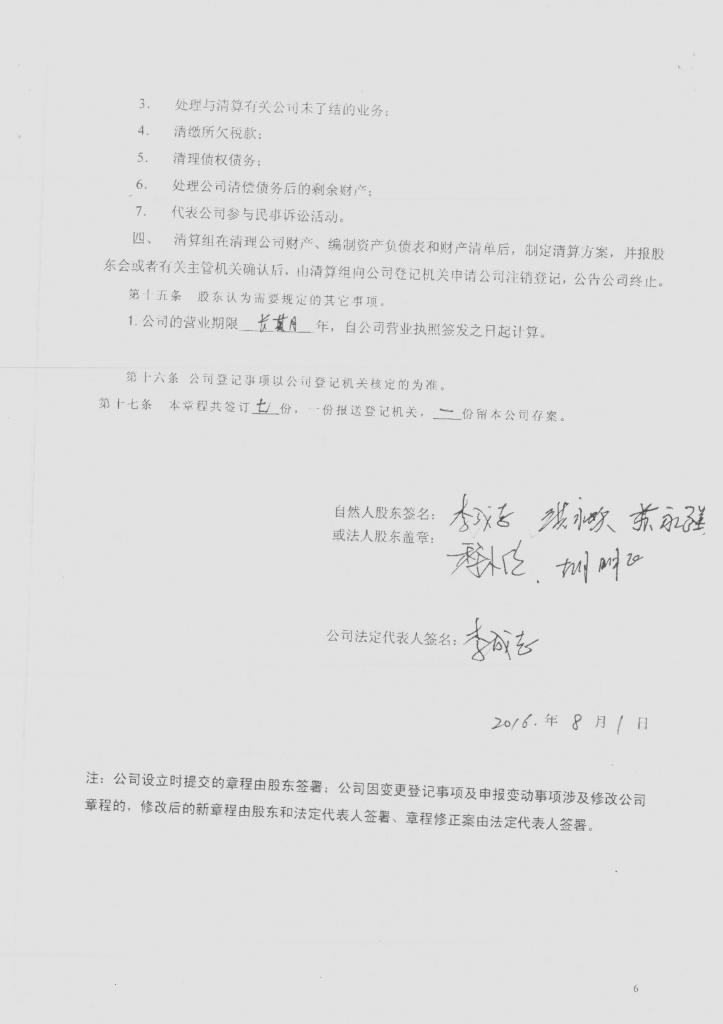 3. 处理与清算有关公司未了结的业务;
4. 清缴所欠税款;
5. 清理债权债务;
6. 处理公司清偿债务后的剩余财产;
7. 代表公司参与民事诉讼活动。
四、 清算组在清理公司财产、编制资产负债表和财产清单后，制定清算方案，并报股
东会或者有关主管机关确认后，由清算组向公司登记机关申请公司注销登记，公告公司终止。
第十五条 股东认为需要规定的其它事项。
1.公司的营业期限 长期 年，自公司营业执照签发之日起计算。
第十六条 公司登记事项以公司登记机关核定的为准。
第十七条 本章程共签订七份，一份报送登记机关，一份留本公司存案。
自然人股东签名: 李成志 苏永强
或法人股东盖章:
公司法定代表人签名: 李成志
2016.年 8 月 1 日
注：公司设立时提交的章程由股东签署；公司因变更登记事项及申报变动事项涉及修改公司
章程的，修改后的新章程由股东和法定代表人签署、章程修正案由法定代表人签署。
6